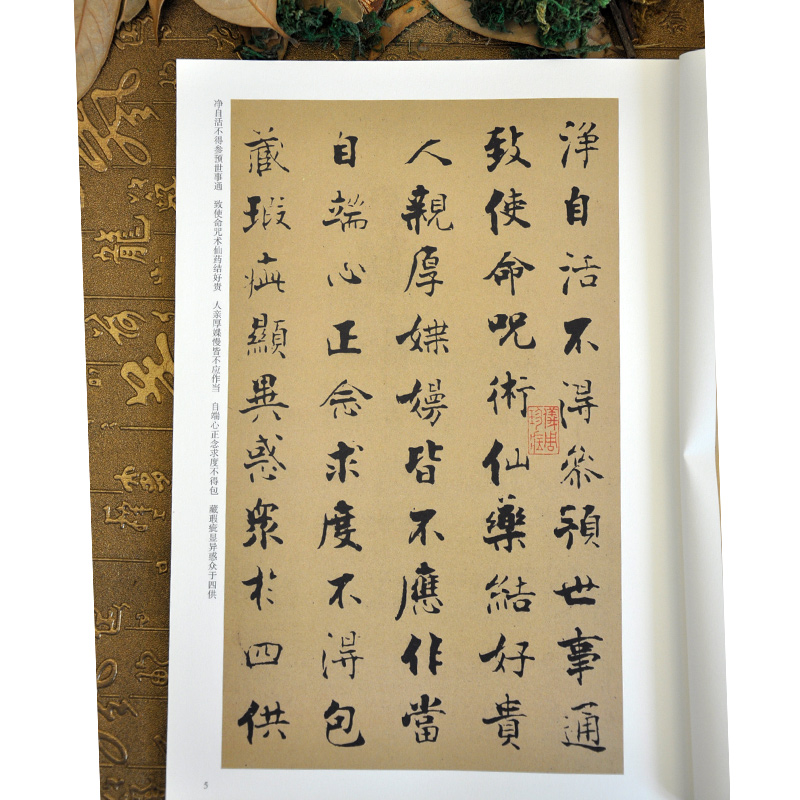 淨自活不得參預世事通
致使命呪術仙藥結好貴
人親厚媟嫚皆不應作當
自端心正念求度不得包
藏瑕疵顯異惑眾於四供
净自活不得参预世事通 致使命咒术仙药结好贵 人亲厚媟慢皆不应作当 自端心正念求度不得包 藏瑕疵显异惑众于四供
5
龍